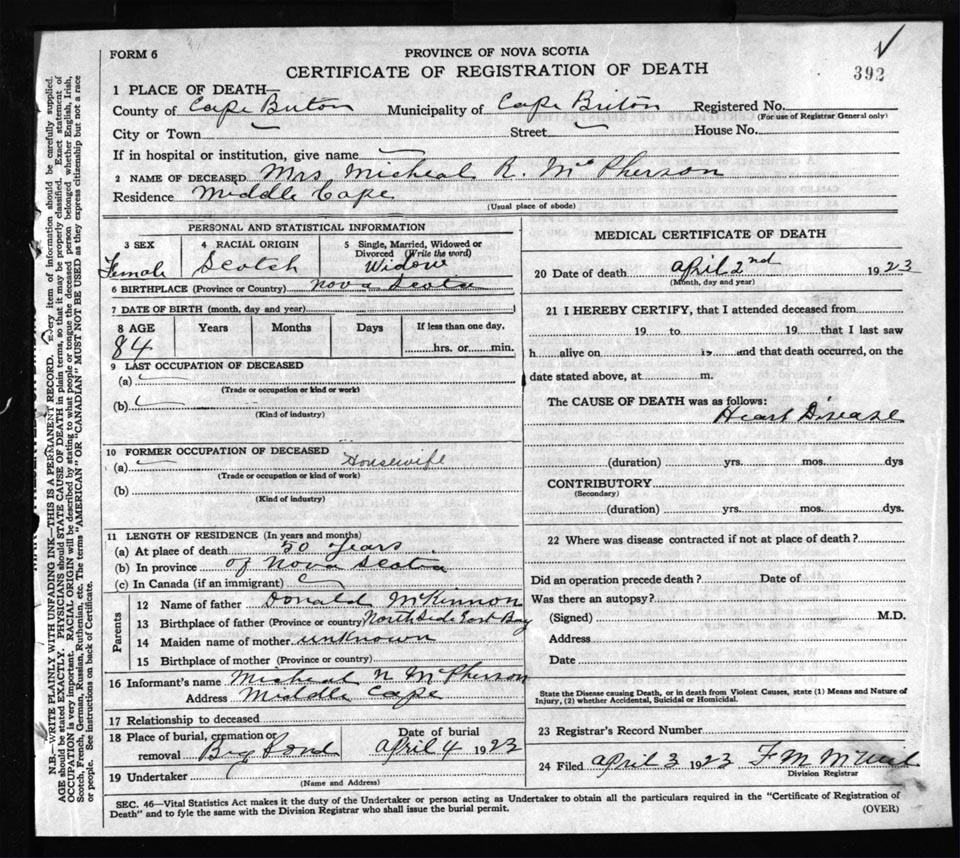 FORM 6
PROVINCE OF NOVA SCOTIA
CERTIFICATE OF REGISTRATION OF DEATH
392
1 PLACE OF DEATH—
County of Cape Briton Municipality of Cape Briton Registered No.
(For use of Registrar General only)
City or Town Street House No.
If in hospital or institution, give name
2 NAME OF DECEASED Mrs Micheal R. McPherson
Residence Middle Cape
(Usual place of abode)
PERSONAL AND STATISTICAL INFORMATION
3 SEX 4 RACIAL ORIGIN 5 Single, Married, Widowed or
Divorced (Write the word)
Female Scotch Widow
6 BIRTHPLACE (Province or Country) Nova Scotia
7 DATE OF BIRTH (month, day and year)
8 AGE Years Months Days If less than one day,
84 hrs. or min.
9 LAST OCCUPATION OF DECEASED
(a)
(Trade or occupation or kind or work)
(b)
(Kind of industry)
10 FORMER OCCUPATION OF DECEASED
(a) Housewife
(Trade or occupation or kind of work)
(b)
(Kind of industry)
11 LENGTH OF RESIDENCE (In years and months)
(a) At place of death 50 years
(b) In province of Nova Scotia
(c) In Canada (if an immigrant)
Parents
12 Name of father Donald McKinnon
13 Birthplace of father (Province or country) North Side East Bay
14 Maiden name of mother unknown
15 Birthplace of mother (Province or country)
16 Informant's name Micheal N McPherson
Address Middle Cape
17 Relationship to deceased
18 Place of burial, cremation or Date of burial
removal Big Pond April 4 1923
19 Undertaker
(Name and Address)
MEDICAL CERTIFICATE OF DEATH
20 Date of death April 2nd 1923
(Month, day and year)
21 I HEREBY CERTIFY, that I attended deceased from
19 to 19 that I last saw
h alive on 19 and that death occurred, on the
date stated above, at m.
The CAUSE OF DEATH was as follows:
Heart Disease
(duration) yrs. mos. dys
CONTRIBUTORY
(Secondary)
(duration) yrs. mos. dys.
22 Where was disease contracted if not at place of death?
Did an operation precede death? Date of
Was there an autopsy?
(Signed) M.D.
Address
Date
State the Disease causing Death, or in death from Violent Causes, state (1) Means and Nature of
Injury, (2) whether Accidental, Suicidal or Homicidal.
23 Registrar's Record Number
24 Filed April 3 1923 F M McNeil
Division Registrar
SEC. 46—Vital Statistics Act makes it the duty of the Undertaker or person acting as Undertaker to obtain all the particulars required in the "Certificate of Registration of
Death" and to fyle the same with the Division Registrar who shall issue the burial permit.
(OVER)
N.B.—WRITE PLAINLY WITH UNFADING INK—THIS IS A PERMANENT RECORD. Every item of information should be carefully supplied.
AGE should be stated EXACTLY. PHYSICIANS should STATE CAUSE OF DEATH in plain terms, so that it may be properly classified. Exact statement of
OCCUPATION is very important. RACIAL ORIGIN will be described by stating to what people or tongue the deceased person belonged, whether English, Irish,
Scotch, French, German, Russian, Ruthenian, etc. The terms "AMERICAN" OR "CANADIAN" MUST NOT BE USED as they express citizenship but not a race
or people. See instructions on back of Certificate.